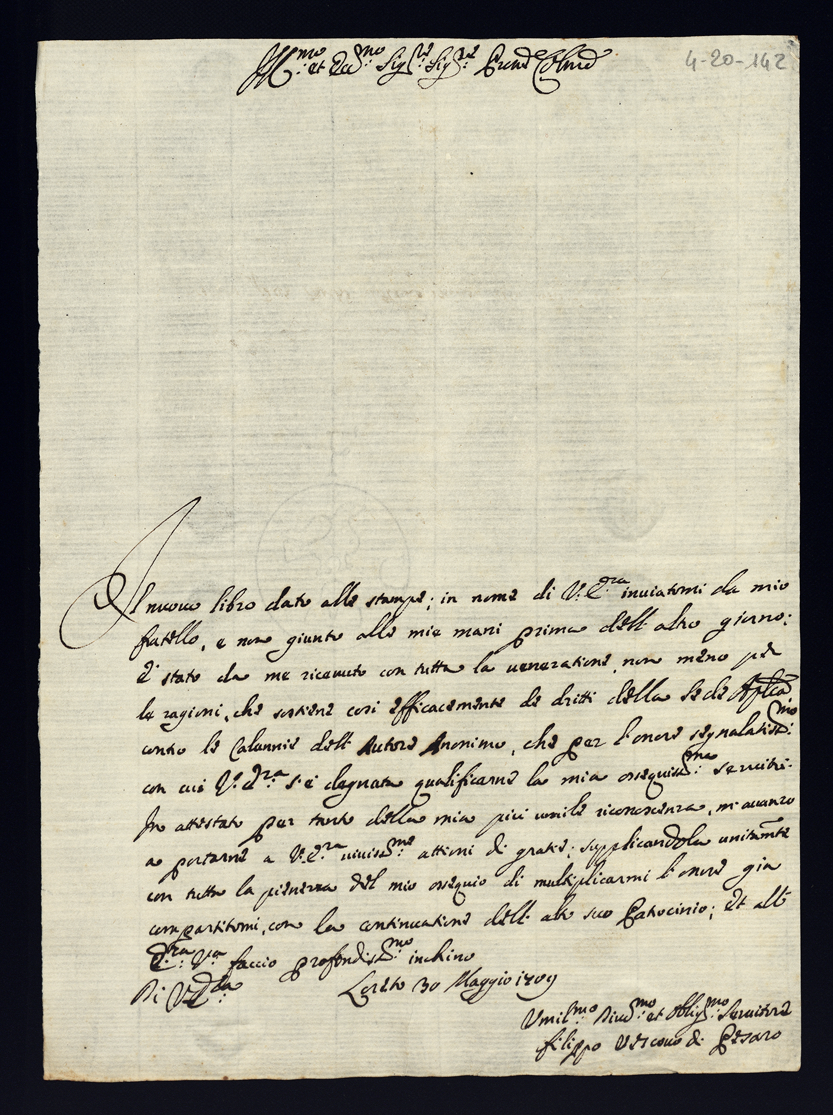 Ill:mo et Ecc:mo Sig:re Sig:re Pron Colmo
4-20-142
Il nuovo libro dato alle stampe; in nome di V:E:ra inviatomi da mio
fratello, e non giunto alle mie mani prima dell'altro giorno;
è stato da me ricevuto con tutta la veneratione, non meno per
le ragioni, che sostiene così efficacemente de dritti della Sede Aplca
contro le Calunnie dell'Autore Anonimo, che per l'onore segnalatiss:mo
con cui V:E:ra s'è degnata qualificarne la mia ossequiss:ma servitù.
In attestato per tanto della mia più umile riconoscenza, m'avanzo
a portarne a V:E:ra viviss:me attioni di gratie; supplicandola unitamte
con tutta la pienezza del mio ossequio di multiplicarmi l'onore già
compartitomi, con la continuatione dell'alto suo Patrocinio; et all'
E:ra V:ra faccio profondiss:mo inchino
Di V:E:ra Loreto 30 Maggio 1709
Umil:mo Div:mo et Oblig:mo Servitore
Filippo Vescovo di Pesaro